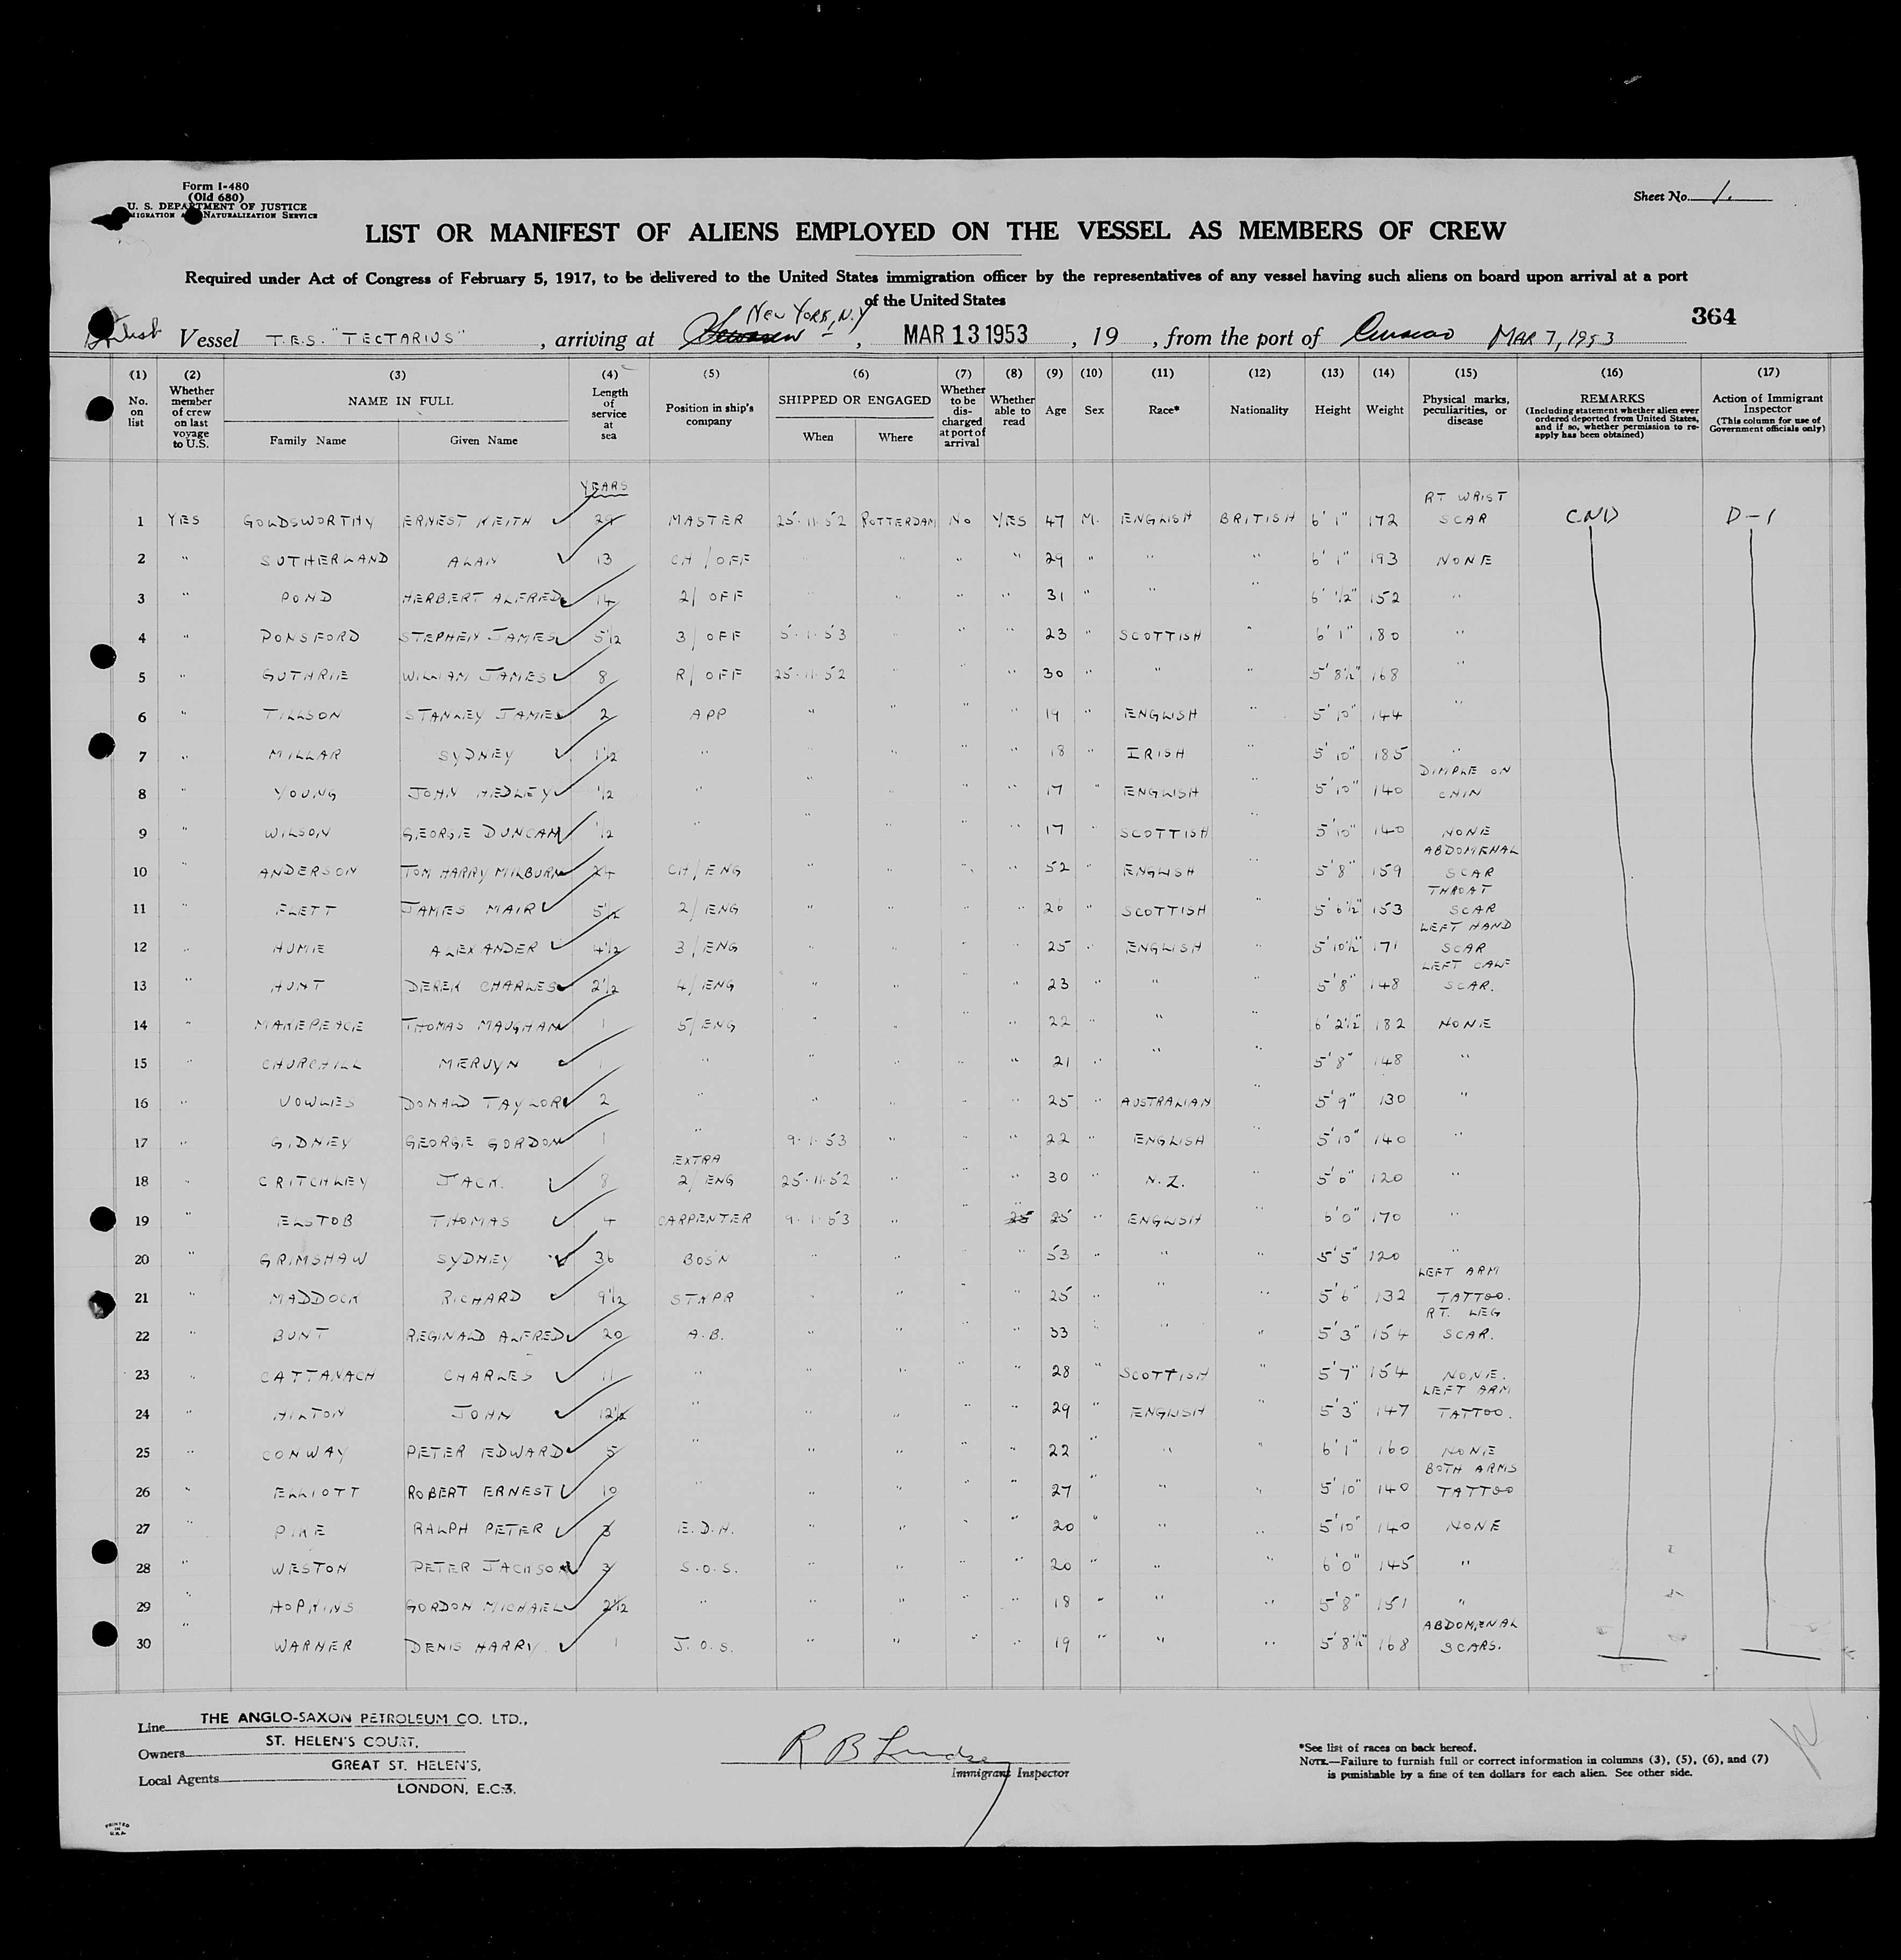 Form I-480
(Old 680)
U. S. DEPARTMENT OF JUSTICE
IMMIGRATION AND NATURALIZATION SERVICE
Sheet No. 1.
LIST OR MANIFEST OF ALIENS EMPLOYED ON THE VESSEL AS MEMBERS OF CREW
Required under Act of Congress of February 5, 1917, to be delivered to the United States immigration officer by the representatives of any vessel having such aliens on board upon arrival at a port
of the United States
364
NEW YORK, N.Y
Vessel T.E.S. "TECTARIUS", arriving at , MAR 13 1953, 19 , from the port of Curacao MAR 7, 1953
(1) No. on list
(2) Whether member of crew on last voyage to U.S.
(3) NAME IN FULL Family Name Given Name
(4) Length of service at sea
(5) Position in ship's company
(6) SHIPPED OR ENGAGED When Where
(7) Whether to be discharged at port of arrival
(8) Whether able to read
(9) Age
(10) Sex
(11) Race*
(12) Nationality
(13) Height
(14) Weight
(15) Physical marks, peculiarities, or disease
(16) REMARKS (Including statement whether alien ever ordered deported from United States, and if so, whether permission to re-apply has been obtained)
(17) Action of Immigrant Inspector (This column for use of Government officials only)
YEARS
1 YES GOLDSWORTHY ERNEST KEITH 29 MASTER 25.11.52 ROTTERDAM NO YES 47 M. ENGLISH BRITISH 6' 1" 172 RT WRIST SCAR CND D-1
2 " SUTHERLAND ALAN 13 CH/OFF " " " " 29 " " " 6' 1" 193 NONE
3 " POND HERBERT ALFRED 14 2/OFF " " " " 31 " " " 6' 1/2" 152 "
4 " PONSFORD STEPHEN JAMES 5 1/2 3/OFF 5.1.53 " " " 23 " SCOTTISH " 6' 1" 180 "
5 " GUTHRIE WILLIAM JAMES 8 R/OFF 25.11.52 " " " 30 " " " 5' 8 1/2" 168 "
6 " TILLSON STANLEY JAMES 2 APP " " " " 19 " ENGLISH " 5' 10" 144 "
7 " MILLAR SYDNEY 1 1/2 " " " " " 18 " IRISH " 5' 10" 185 "
8 " YOUNG JOHN HEDLEY 1/2 " " " " " 17 " ENGLISH " 5' 10" 140 DIMPLE ON CHIN
9 " WILSON GEORGE DUNCAN 1/2 " " " " " 17 " SCOTTISH " 5' 10" 140 NONE
10 " ANDERSON TOM HARRY MILBURN 24 CH/ENG " " " " 52 " ENGLISH " 5' 8" 159 ABDOMENAL SCAR
11 " FLETT JAMES MAIR 5 1/2 2/ENG " " " " 26 " SCOTTISH " 5' 6 1/2" 153 THROAT SCAR
12 " HUME ALEXANDER 4 1/2 3/ENG " " " " 25 " ENGLISH " 5' 10 1/2" 171 LEFT HAND SCAR
13 " HUNT DEREK CHARLES 2 1/2 4/ENG " " " " 23 " " " 5' 8" 148 LEFT CALF SCAR.
14 " MAKEPEACE THOMAS MAUGHAN 1 5/ENG " " " " 22 " " " 6' 2 1/2" 182 NONE
15 " CHURCHILL MERVYN 1 " " " " " 21 " " " 5' 8" 148 "
16 " VOWLES DONALD TAYLOR 2 " " " " " 25 " AUSTRALIAN " 5' 9" 130 "
17 " GIDNEY GEORGE GORDON 1 " 9.1.53 " " " 22 " ENGLISH " 5' 10" 140 "
18 " CRITCHLEY JACK. 8 EXTRA 2/ENG 25.11.52 " " " 30 " N.Z. " 5' 6" 120 "
19 " ELSTOB THOMAS 4 CARPENTER 9.1.53 " " 25 25 " ENGLISH " 6' 0" 170 "
20 " GRIMSHAW SYDNEY 36 BOS'N " " " " 53 " " " 5' 5" 120 "
21 " MADDOCK RICHARD 9 1/2 STKPR " " " " 25 " " " 5' 6" 132 LEFT ARM TATTOO.
22 " BUNT REGINALD ALFRED 20 A.B. " " " " 33 " " " 5' 3" 154 RT. LEG SCAR.
23 " CATTANACH CHARLES 11 " " " " " 28 " SCOTTISH " 5' 7" 154 NONE.
24 " HILTON JOHN 12 1/2 " " " " " 29 " ENGLISH " 5' 3" 147 LEFT ARM TATTOO.
25 " CONWAY PETER EDWARD 5 " " " " " 22 " " " 6' 1" 160 NONE
26 " ELLIOTT ROBERT ERNEST 10 " " " " " 27 " " " 5' 10" 140 BOTH ARMS TATTOO
27 " PIKE RALPH PETER 3 E.D.H. " " " " 20 " " " 5' 10" 140 NONE
28 " WESTON PETER JACKSON 3 S.O.S. " " " " 20 " " " 6' 0" 145 "
29 " HOPKINS GORDON MICHAEL 2 1/2 " " " " " 18 " " " 5' 8" 151 "
30 " WARNER DENIS HARRY. 1 J.O.S. " " " " 19 " " " 5' 8 1/2" 168 ABDOMENAL SCARS.
Line THE ANGLO-SAXON PETROLEUM CO. LTD.,
Owners ST. HELEN'S COURT,
GREAT ST. HELEN'S,
Local Agents
LONDON, E.C.3.
R B Lindsey
Immigrant Inspector
*See list of races on back hereof.
NOTE.—Failure to furnish full or correct information in columns (3), (5), (6), and (7)
is punishable by a fine of ten dollars for each alien. See other side.
PRINTED
IN
U.S.A.